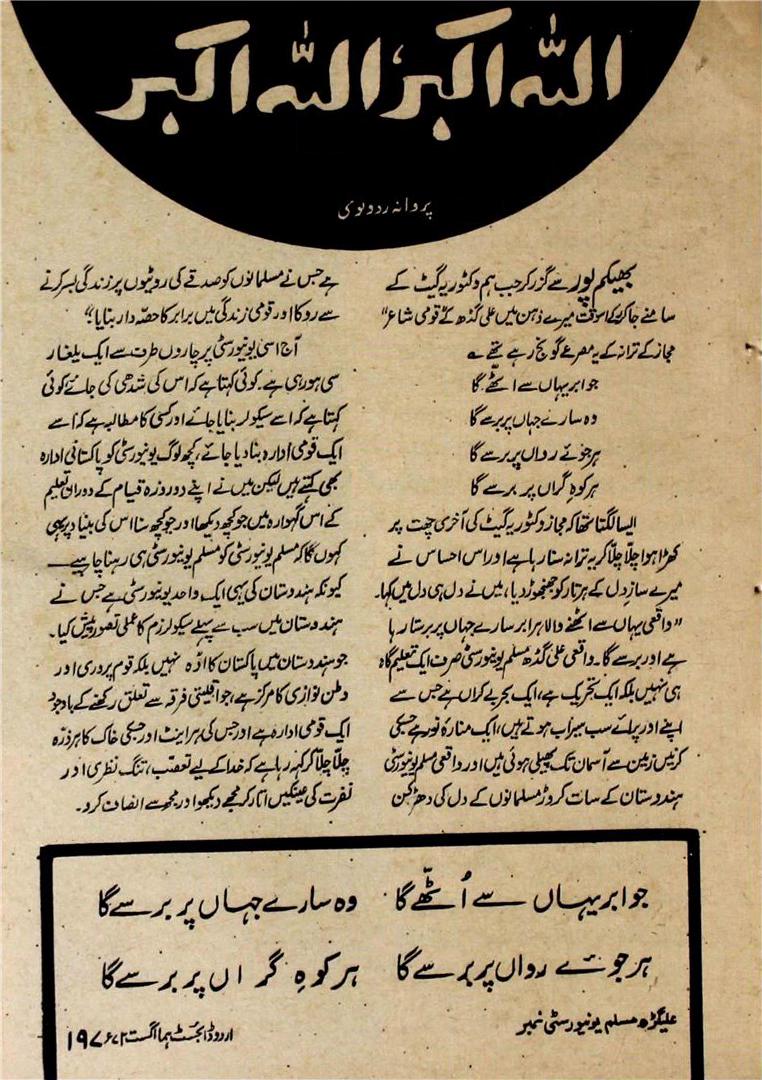 اللہ اکبر، اللہ اکبر
پروانہ ردولوی
بھیکم پور سے گزر کر جب ہم وکٹوریہ گیٹ کے
سامنے جا کر رکے اسوقت میرے ذہن میں علی گڈھ کے "قومی شاعر"
مجاز کے ترانہ کے یہ مصرعے گونج رہے تھے ؎
جو ابر یہاں سے اٹھے گا
وہ سارے جہاں پر برسے گا
ہر جوئے رواں پر برسے گا
ہر کوہِ گراں پر برسے گا
ایسا لگتا تھا کہ مجاز وکٹوریہ گیٹ کی آخری چھت پر
کھڑا ہوا چلّا چلّا کر یہ ترانہ سنا رہا ہے اور اس احساس نے
میرے سازِ دل کے ہر تار کو جھنجھوڑ دیا، میں نے دل ہی دل میں کہا۔
"واقعی یہاں سے اٹھنے والا ہر ابر سارے جہاں پر برستا رہا
ہے اور برسے گا۔ واقعی علی گڈھ مسلم یونیورسٹی صرف ایک تعلیم گاہ
ہی نہیں بلکہ ایک تحریک ہے، ایک بحرِ بے کراں ہے جس سے
اپنے اور پرائے سب سیراب ہوتے ہیں، ایک منارۂ نور ہے جسکی
کرنیں زمین سے آسمان تک پھیلی ہوئی ہیں اور واقعی مسلم یونیورسٹی
ہندوستان کے سات کروڑ مسلمانوں کے دل کی دھڑکن
ہے جس نے مسلمانوں کو صدقے کی روٹیوں پر زندگی بسر کرنے
سے روکا اور قومی زندگی میں برابر کا حصّہ دار بنایا۔"
آج اسی یونیورسٹی پر چاروں طرف سے ایک یلغار
سی ہو رہی ہے۔ کوئی کہتا ہے کہ اس کی شدھی کی جائے کوئی
کہتا ہے کہ اسے سیکولر بنایا جائے اور کسی کا مطالبہ ہے کہ اسے
ایک قومی ادارہ بنا دیا جائے، کچھ لوگ یونیورسٹی کو پاکستانی ادارہ
بھی کہتے ہیں لیکن میں نے اپنے دو روزہ قیام کے دوران تعلیم
کے اس گہوارہ میں جو کچھ دیکھا اور جو کچھ سنا اس کی بنیاد پر یہی
کہوں گا کہ مسلم یونیورسٹی کو مسلم یونیورسٹی ہی رہنا چاہیے۔
کیونکہ ہندوستان کی یہی ایک واحد یونیورسٹی ہے جس نے
ہندوستان میں سب سے پہلے سیکولرزم کا عملی تصور پیش کیا۔
جو ہندوستان میں پاکستان کا اڈہ نہیں بلکہ قوم پروری اور
وطن نوازی کا مرکز ہے، جو اقلیتی فرقہ سے تعلق رکھنے کے باوجود
ایک قومی ادارہ ہے اور جس کی ہر اینٹ اور جسکی خاک کا ہر ذرّہ
چلّا چلّا کر کہہ رہا ہے کہ خدا کے لیے تعصب، تنگ نظری اور
نفرت کی عینکیں اتار کر مجھے دیکھو اور مجھ سے انصاف کرو۔
جو ابر یہاں سے اُٹھّے گا وہ سارے جہاں پر برسے گا
ہر جوئے رواں پر برسے گا ہر کوہِ گراں پر برسے گا
علیگڑھ مسلم یونیورسٹی نمبر
اردو ڈائجسٹ ہما اگست ۱۹۷۲ء ۱۹۷